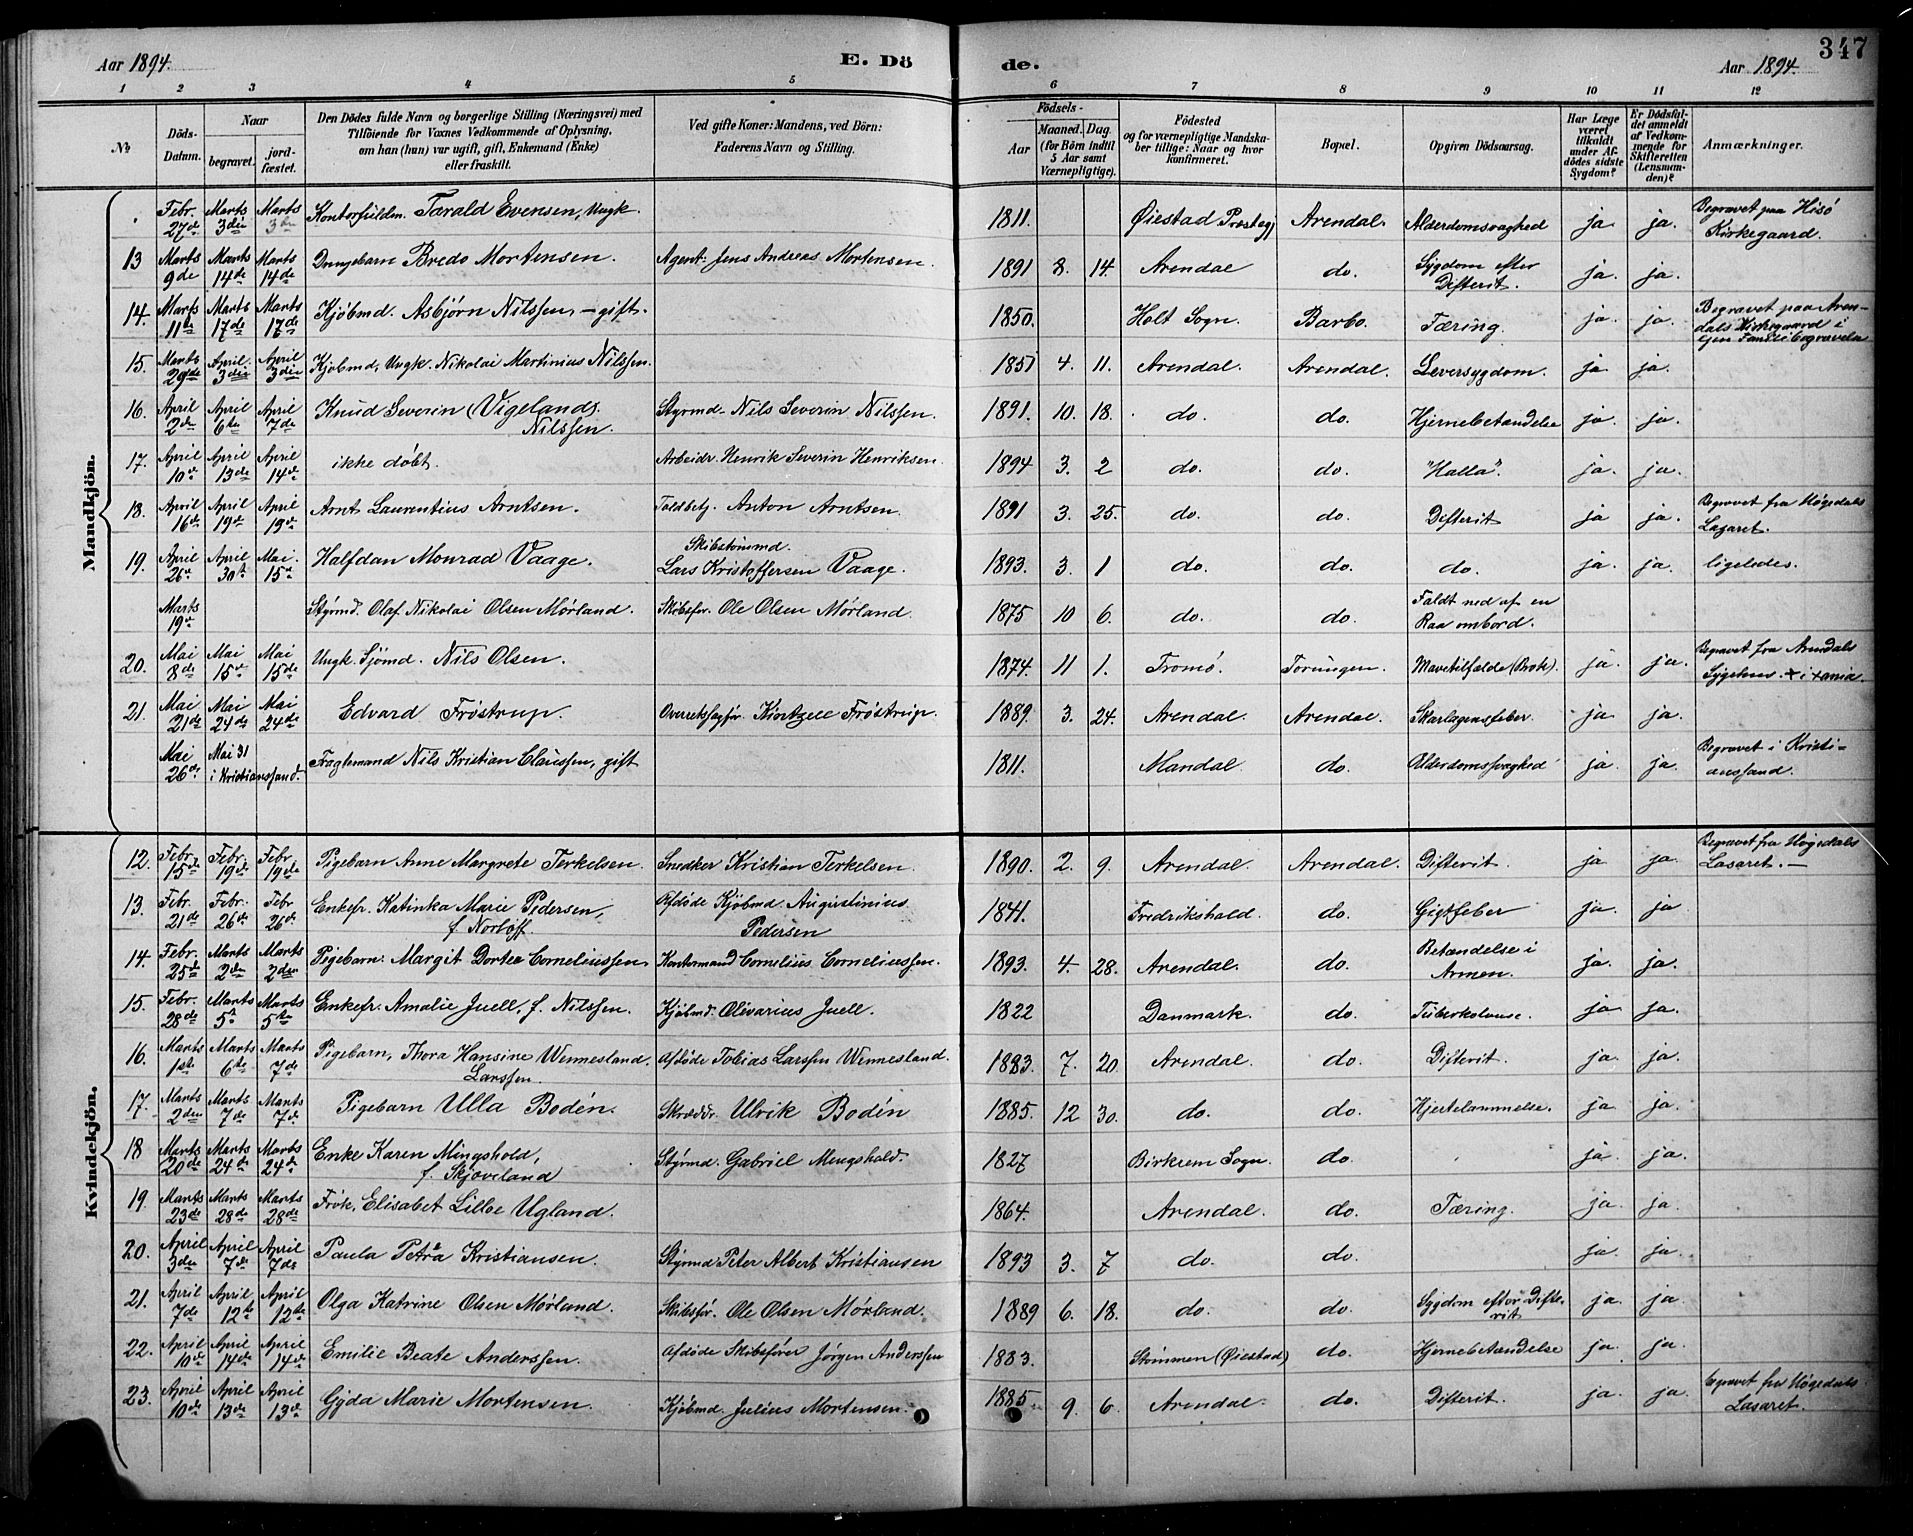 Aar 1894. E. Dö de. Aar 1894. 347
1 2 3 4 5 6 7 8 9 10 11 12
No Döds-Datum. Naar begravet. jordfæstet. Den Dödes fulde Navn og borgerlige Stilling (Næringsvei) med Tilföiende for Voxnes Vedkommende af Oplysning, om han (hun) var ugift, gift, Enkemand (Enke) eller fraskilt. Ved gifte Koner: Mandens, ved Börn: Faderens Navn og Stilling. Födsels- Aar Maaned. Dag. (for Börn indtil 5 Aar samt Værnepligtige). Födested og for værnepligtige Mandskaber tillige: Naar og hvor konfirmeret. Bopæl. Opgiven Dödsaarsag. Har Læge været tilkaldt under Afdödes sidste Sygdom? Er Dödsfaldet anmeldt af Vedkommende for Skifteretten (Lensmanden)? Anmærkninger.
Mandkjön.
Febr. 27de Marts 3die Marts 3die Kontorfuldm. Tarald Evensen, Ungk. 1811. Øiestad Præstegj Arendal. Alderdomsvaghed ja. ja. Begravet paa Hisö Kirkegaard.
13 Marts 9de Marts 14de Marts 14de Drengebarn Bredo Mortensen. Agent: Jens Andreas Mortensen. 1891 8. 14. Arendal do. Sygdom efter Difterit. ja. ja.
14. Marts 11te Marts 17de Marts 17de Kjøbmd. Asbjørn Nilssen, - gift. 1850. Holt Sogn. Barbo. Tæring. ja. ja. Begravet paa Arendals Kirkegaard i egen Familiebegravelse
15. Marts 29de April. 3die April 3die Kjøbmd, Ungk. Nikolai Martinius Nilssen. 1851 4. 11. Arendal. Arendal. Leversygdom. ja ja.
16. April 2den April 6te April 7de Knud Severin (Vigelands) Nilssen. Styrmd. Nils Severin Nilssen. 1891. 10. 18. do. do. Hjernebetændelse ja. ja.
17. April 10de April 13de April 14de ikke døbt. Arbeidr. Henrik Severin Henriksen. 1894 3. 2 do. do. "Halla". ja. ja.
18. April 16de April 19de April 19de Arnt Laurentius Arntsen. Toldbetj. Anton Arntsen. 1891 3. 25. do. do. Difterit ja ja. Begravet fra Høgedals Lasaret.
19. April 26de April 30te Mai. 15de Halfdan Monrad Vaage. Skibstømmd. Lars Kristoffersen Vaage. 1893. 3. 1 do. do. do. ja. ja. ligeledes.
Marts 19de Styrmd. Olaf Nikolai Olsen Mørland. Skibsfør. Ole Olsen Mørland 1875 10 6. do. do. Faldt ned af en Raa ombord.
20. Mai 8de Mai 15de Mai 15de Ungk. Sjømd. Nils Olsen. 1874. 11 1. Tromø. Torungen. Mavetilfælde (Brok). ja. ja. Begravet fra Arendals Sygehus. + i +ania.
21. Mai 21de Mai 24de Mai 24de Edvard Frøstrup. Overretssagfør. Kirtzell Frøstrup. 1889. 3. 24. Arendal. Arendal. Skarlagensfeber. ja. ja.
Mai 26de Mai 31 i Kristiansand. Fragtemand Nils Kristian Claussen, gift 1811. Mandal. do. Alderdomssvaghed ja. ja. Begravet i Kristiansand.
Kvindekjön.
12. Febr. 15de Febr. 19de Febr 19de Pigebarn Anne Margrete Terkelsen. Snedker Kristian Terkelsen. 1890. 2. 9. Arendal. Arendal. Difterit. ja ja. Begravet fra Høgedals Lasaret. -
13. Febr. 21de Febr. 26de Febr 26de Enkefr. Katinka Marie Pedersen, f. Norløff. Afdøde Kjøbmd. Augustinius Pedersen 1841. Fredrikshald. do. Gigtfeber ja. ja
14. Febr. 25de Marts 2den Marts 2den Pigebarn: Margit Dortea Corneliussen Kontormand Cornelius Corneliussen. 1893. 4. 28. Arendal. do. Betændelse i Armen. ja. ja.
15. Febr. 28de Marts 5te Marts 5te Enkefr. Amalie Juell, f. Nilssen. Kjøbmd. Olivarius Juell. 1822 Danmark. do. Tuberkolouse. ja. ja.
16. Marts 1ste Marts 6de Marts 7de Pigebarn, Thora Hansine Wennesland. Larssen. Afdøde Tobias Larssen Wennesland. 1883. 7. 20. Arendal. do. Difterit. ja. ja.
17. Marts 2den Marts 7de Marts 7de. Pigebarn Ulla Bodén. Skrædr. Ulrik Bodén 1885. 12 30. do. do. Hjertelammelse. ja. ja.
18 Marts 20de Marts 24de Marts 24de Enke Karen Mingshold, f. Skjoveland Styrmd. Gabriel Mingshold. 1827 Birkrem Sogn. do. ja. ja.
19. Marts 23de Marts 28de Marts 28de Frøk. Elisabet Lilloe Ugland. 1864. Arendal. do. Tæring. ja. ja.
20. April 3die April 7de April 7de Paula Petra Kristiansen. Styrmd Peter Albert Kristiansen 1893 3. 7 do. do. ja. ja.
21. April 7de April 12te April 12te Olga Katrine Olsen Mørland. Skibsfør. Ole Olsen Mørland. 1889 6. 18. do. do. Sygdom efter Difterit ja. ja.
22. April 10de April 14de April 14de Emilie Beate Anderssen. Afdøde Skibsfører Jørgen Anderssen 1883. Strømmen (Øiestad) do. Hjernebetændelse ja. ja.
23. April 10de April 13de April 13de Gyda Marie Mortensen. Kjøbmd. Julius Mortensen. 1885 9. 6. Arendal. do. Difterit. ja. ja. Begravet fra Høgedals Lasaret.